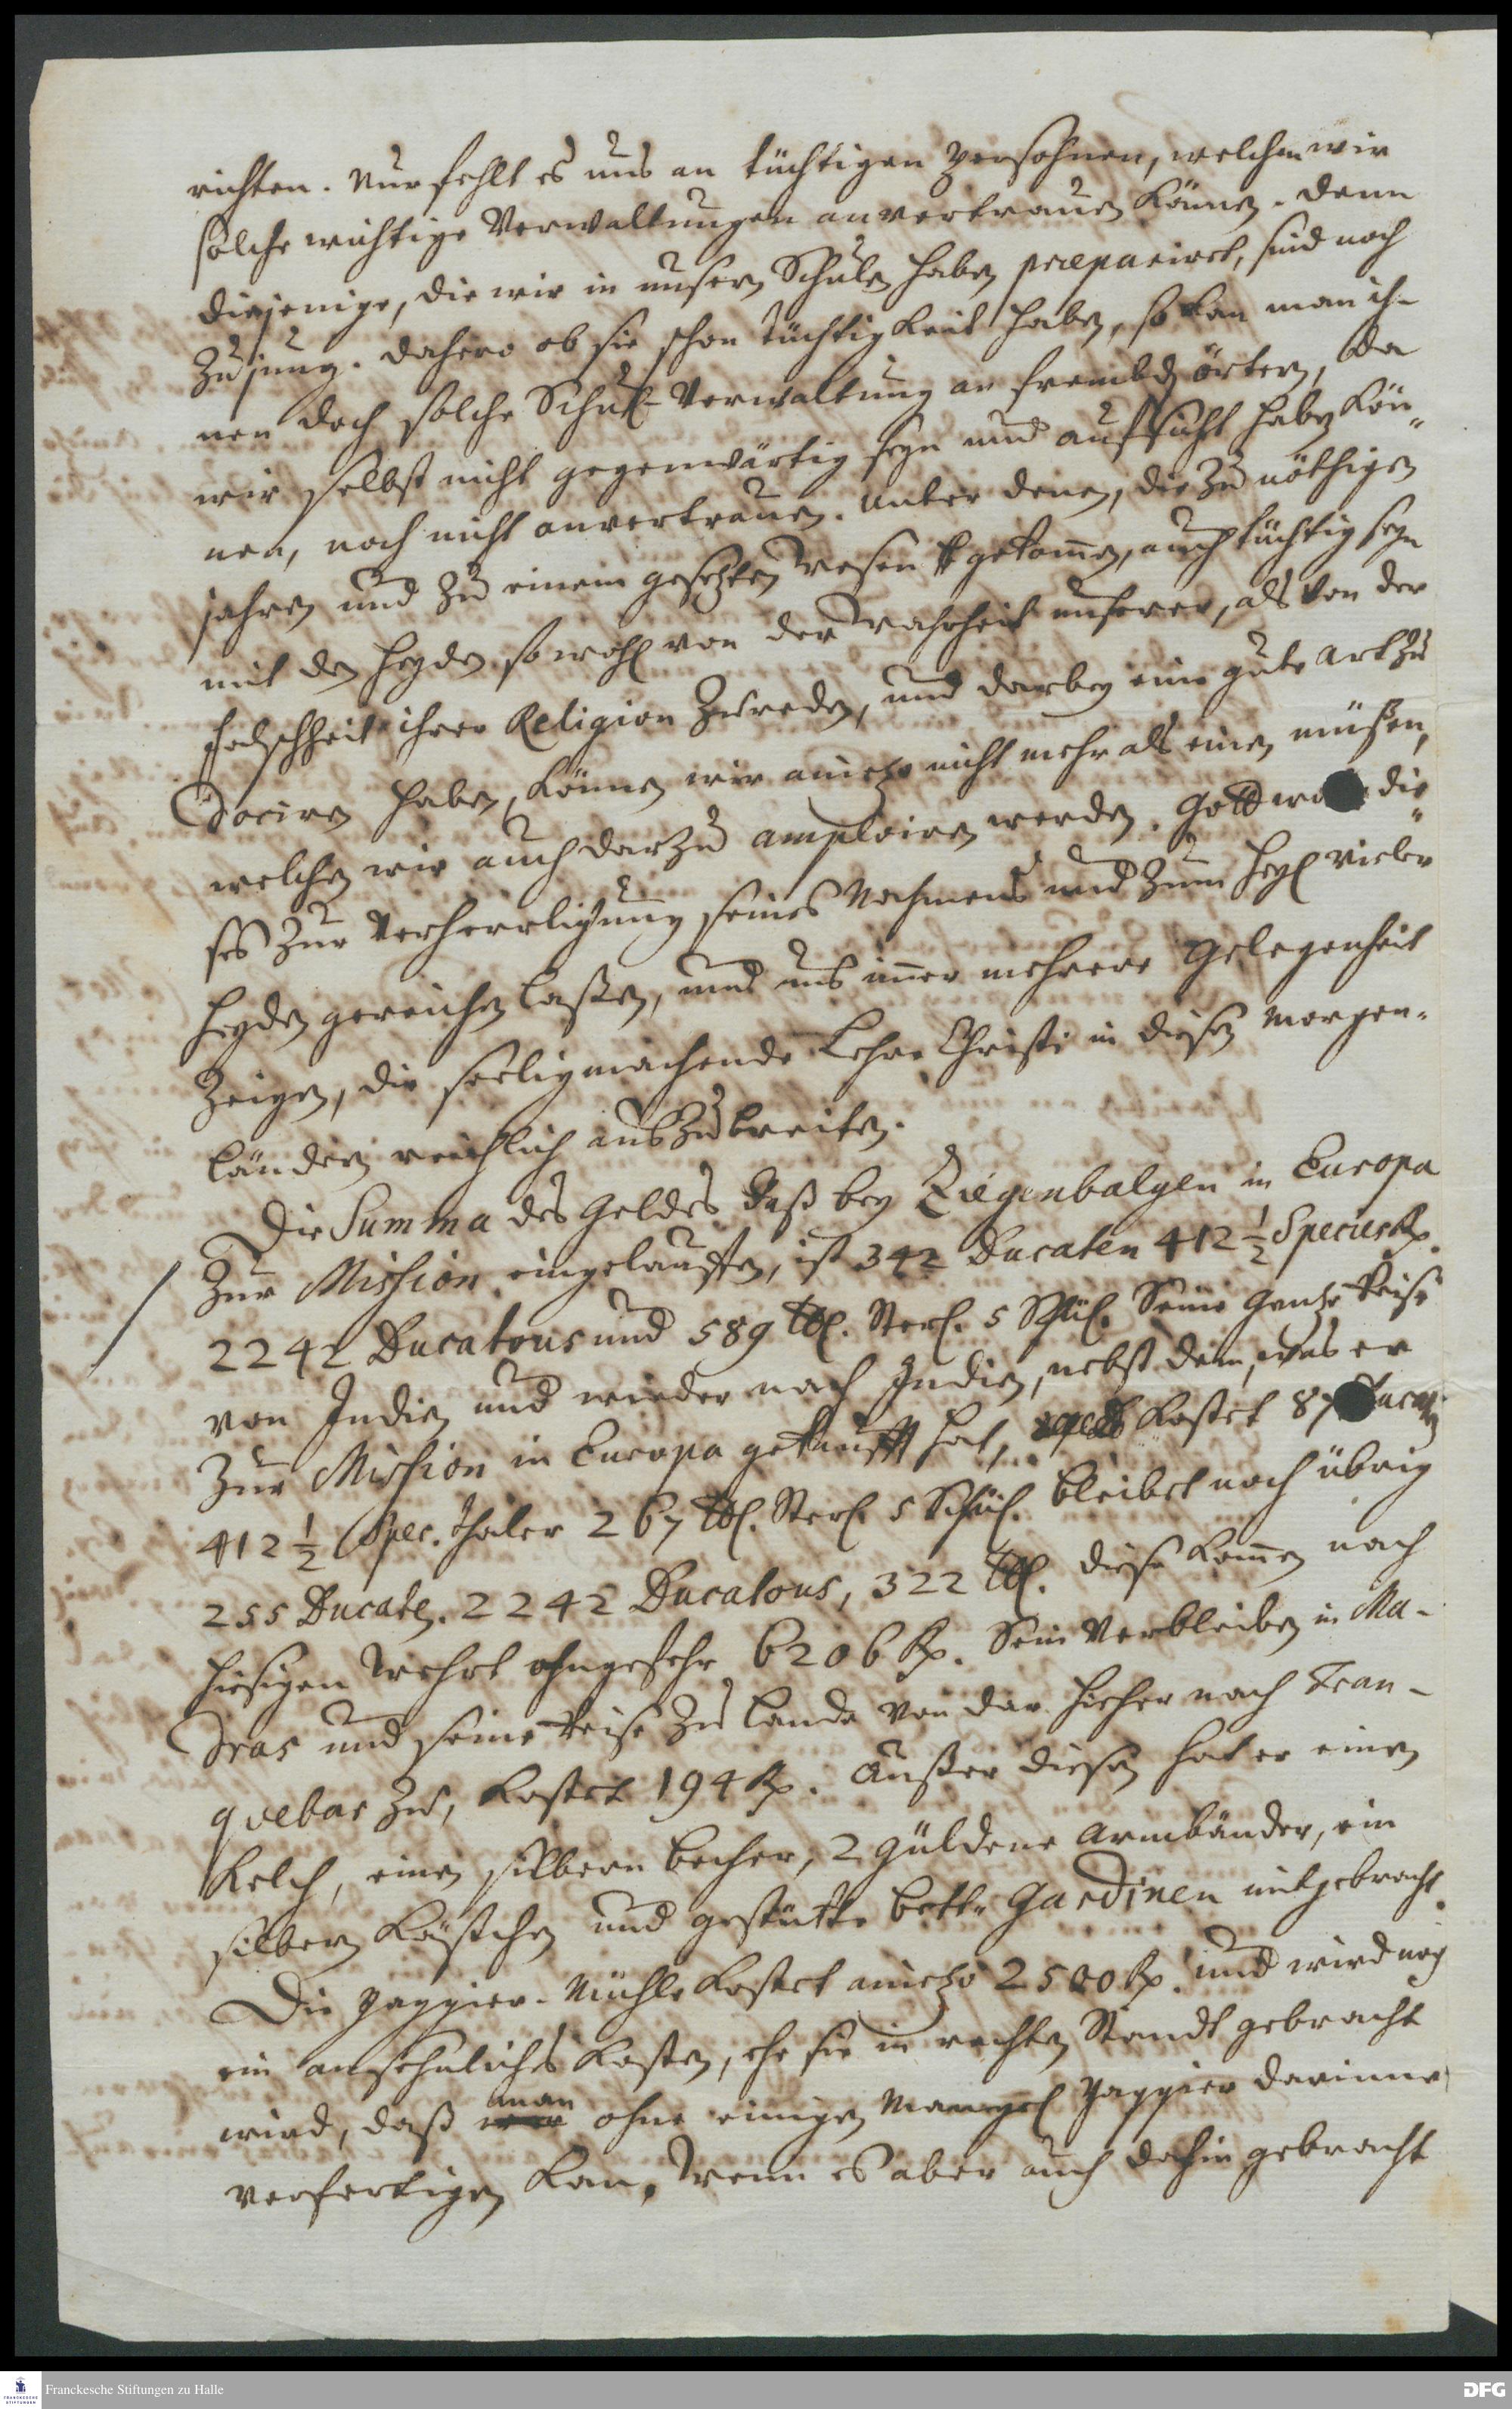 richten. Nur fehlt es uns an tüchtigen Persohnen, welchen wir
solche wichtige Verwaltungen anvertrauen können. Denn
diejenige, die wir in unsern Schulen haben præparirct, sind noch
zu jung. Dahero ob sie schon Tüchtigkeit haben, so kan man ih-
nen doch solche Schul-Verwaltung an frembden örtern, da
wir selbst nicht gegenwärtig seyn und auffsicht haben kön„
nen, noch nicht anvertrauen. Unter denen, die zu nöthigen
jahren und zu einem gesetzten Wesen gekommen, auch tüchtig seyn
mit den Heyden so wohl von der Wahrheit unserer, als von der
falschheit ihrer Religion zu reden, und darbey eine gute Art zu
Dociren haben, können wir anietzo nicht mehr als einen müßen,
welchen wir auch darzu amploiren werden. Gott die„
ses zur Verherrligung seines Nahmens und zum Heyl vieler
Heyden gereichen laßen, und uns immer mehrere Gelegenheit
zeigen, die seeligmachende Lehre Christi in diesen Morgen-
ländern reichlich auszubreiten.
Die Summa des Geldes daß bey Ziegenbalgen in Europa
zur Mission eingelauffen, ist 342 Ducaten 412 1/2 Species Rp.
2242 Ducatons und 589 lbl. Sterl. 5 Schil. Seine Gantze Reise
von Indien und wieder nach Indien, nebst dem, was er
zur Mission in Europa gekaufft hat, kostet 87 Ducaten
412 1/2 Spec. Thaler 267 lbl. Sterl. 5 Schil. bleibet noch übrig
255 Ducaten. 2242 Ducatons, 322 lbl. diese kommen nach
hiesigen Wehrt ohngefehr 6206 Rp. Sein Verbleiben in Ma-
dras und seine Reise zu Lande von dar hieher nach Tran-
quebar zu, kostet 194 Rp. Außer diesen hat er einen
Kelch, einen silbern becher, 2 güldene Armbänder, ein
silbern Kästchen und gestückte bett- Gardinen mitgebracht.
Die Pappier-Mühle kostet anietzo 2500 Rp. und wird noch
ein ansehnliches kosten, ehe sie in rechten Standt gebracht
wird, daß man ohne einigen Mangel Pappier darinne
verfertigen kan, Wenn es aber auch dahin gebracht
Franckesche Stiftungen zu Halle
DFG